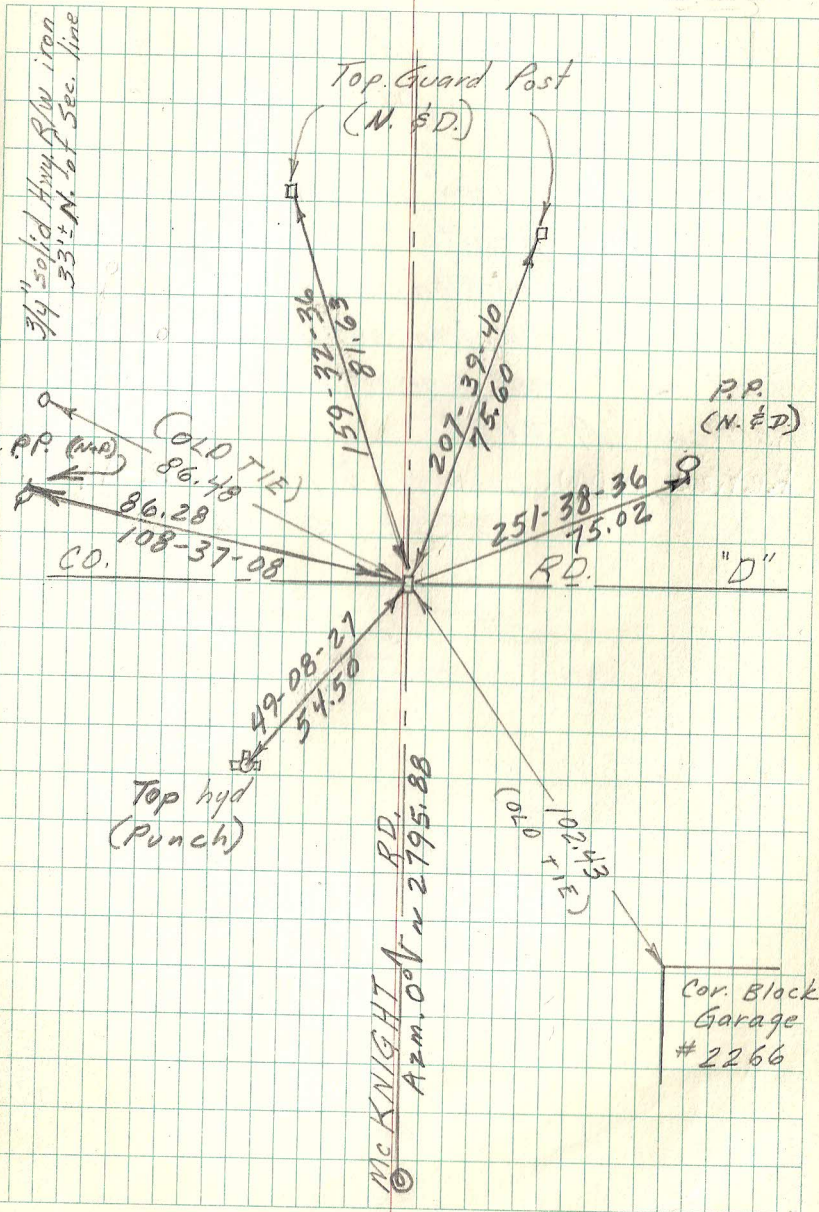 3/4" solid Hwy R/W iron
33'± N. of Sec. line
Top. Guard Post
(N. & D.)
159-32-36
81.63
207-39-40
75.60
P.P.
(N. & D)
P.P. (N&D)
(OLD TIE)
86.48
86.28
108-37-08
251-38-36
75.02
CO. RD. "D"
49-08-27
54.50
Top hyd
(Punch)
McKNIGHT RD.
Azm. 0° ~ 2795.88
102.43
(OLD TIE)
Cor. Block
Garage
# 2266